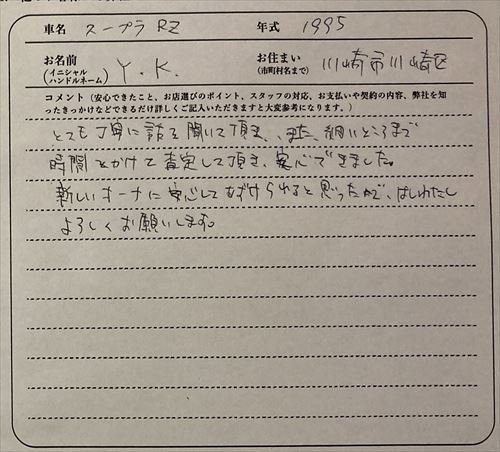 車名 スープラ RZ 年式 1995
お名前 (イニシャル ハンドルネーム) Y.K. お住まい (市町村名まで) 川崎市川崎区
コメント（安心できたこと、お店選びのポイント、スタッフの対応、お支払いや契約の内容、弊社を知
ったきっかけなどできるだけ詳しくご記入いただきますと大変参考になります。）
とても丁寧に話を聞いて頂き、また、細いところまで
時間をかけて査定して頂き、安心できました。
新しいオーナに安心してあずけられると思ったので、
よろしくお願いします。